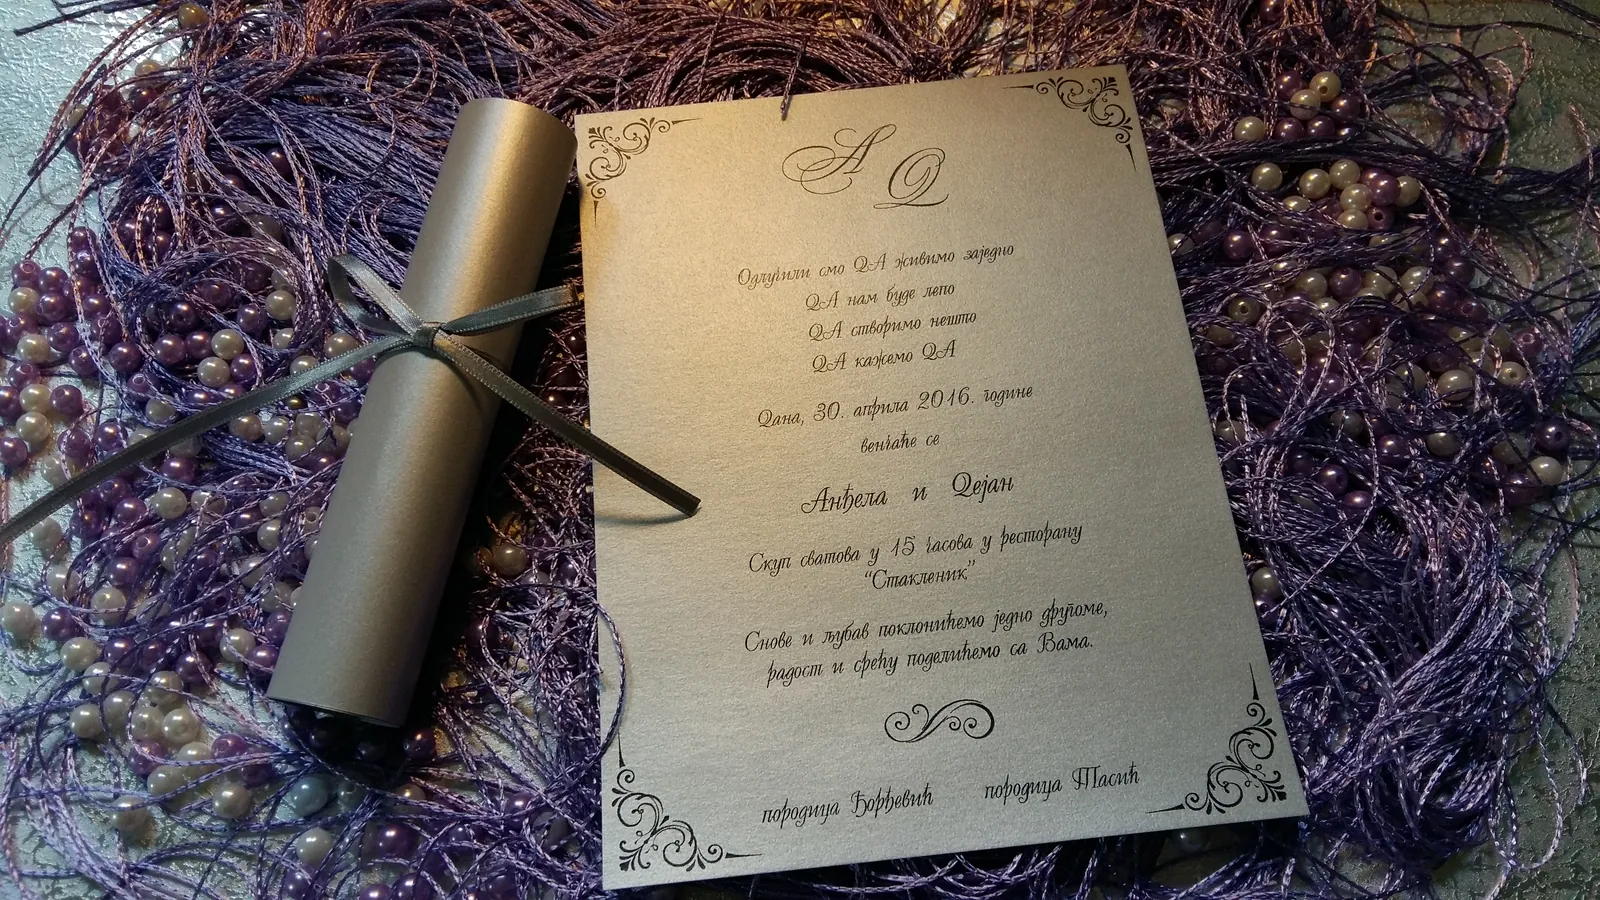 А Д
Одлучили смо ДА живимо заједно
ДА нам буде лепо
ДА створимо нешто
ДА кажемо ДА
Дана, 30. априла 2016. године
венчаће се
Анђела и Дејан
Скуп сватова у 15 часова у ресторану
“Стакленик”
Снове и љубав поклонићемо једно другоме,
радост и срећу поделићемо са Вама.
породица Ђорђевић породица Тасић